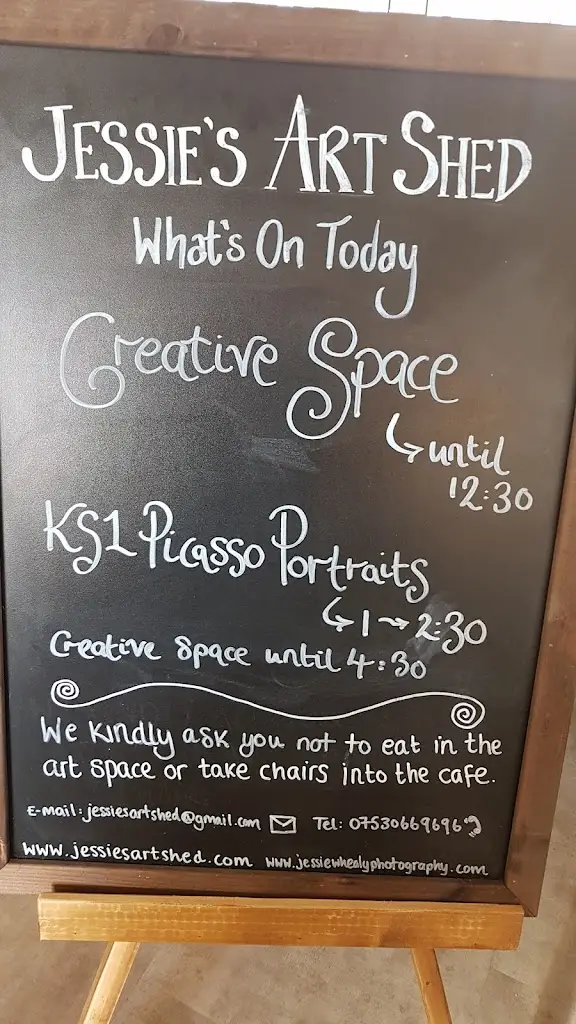 JESSIE'S ART SHED
What's On Today
Creative Space
↳ until
12:30
KS1 Picasso Portraits
↳ 1 → 2:30
Creative Space until 4:30
We kindly ask you not to eat in the
art space or take chairs into the cafe.
E-mail: jessiesartshed@gmail.com Tel: 07530669696
www.jessiesartshed.com www.jessiewhealyphotography.com